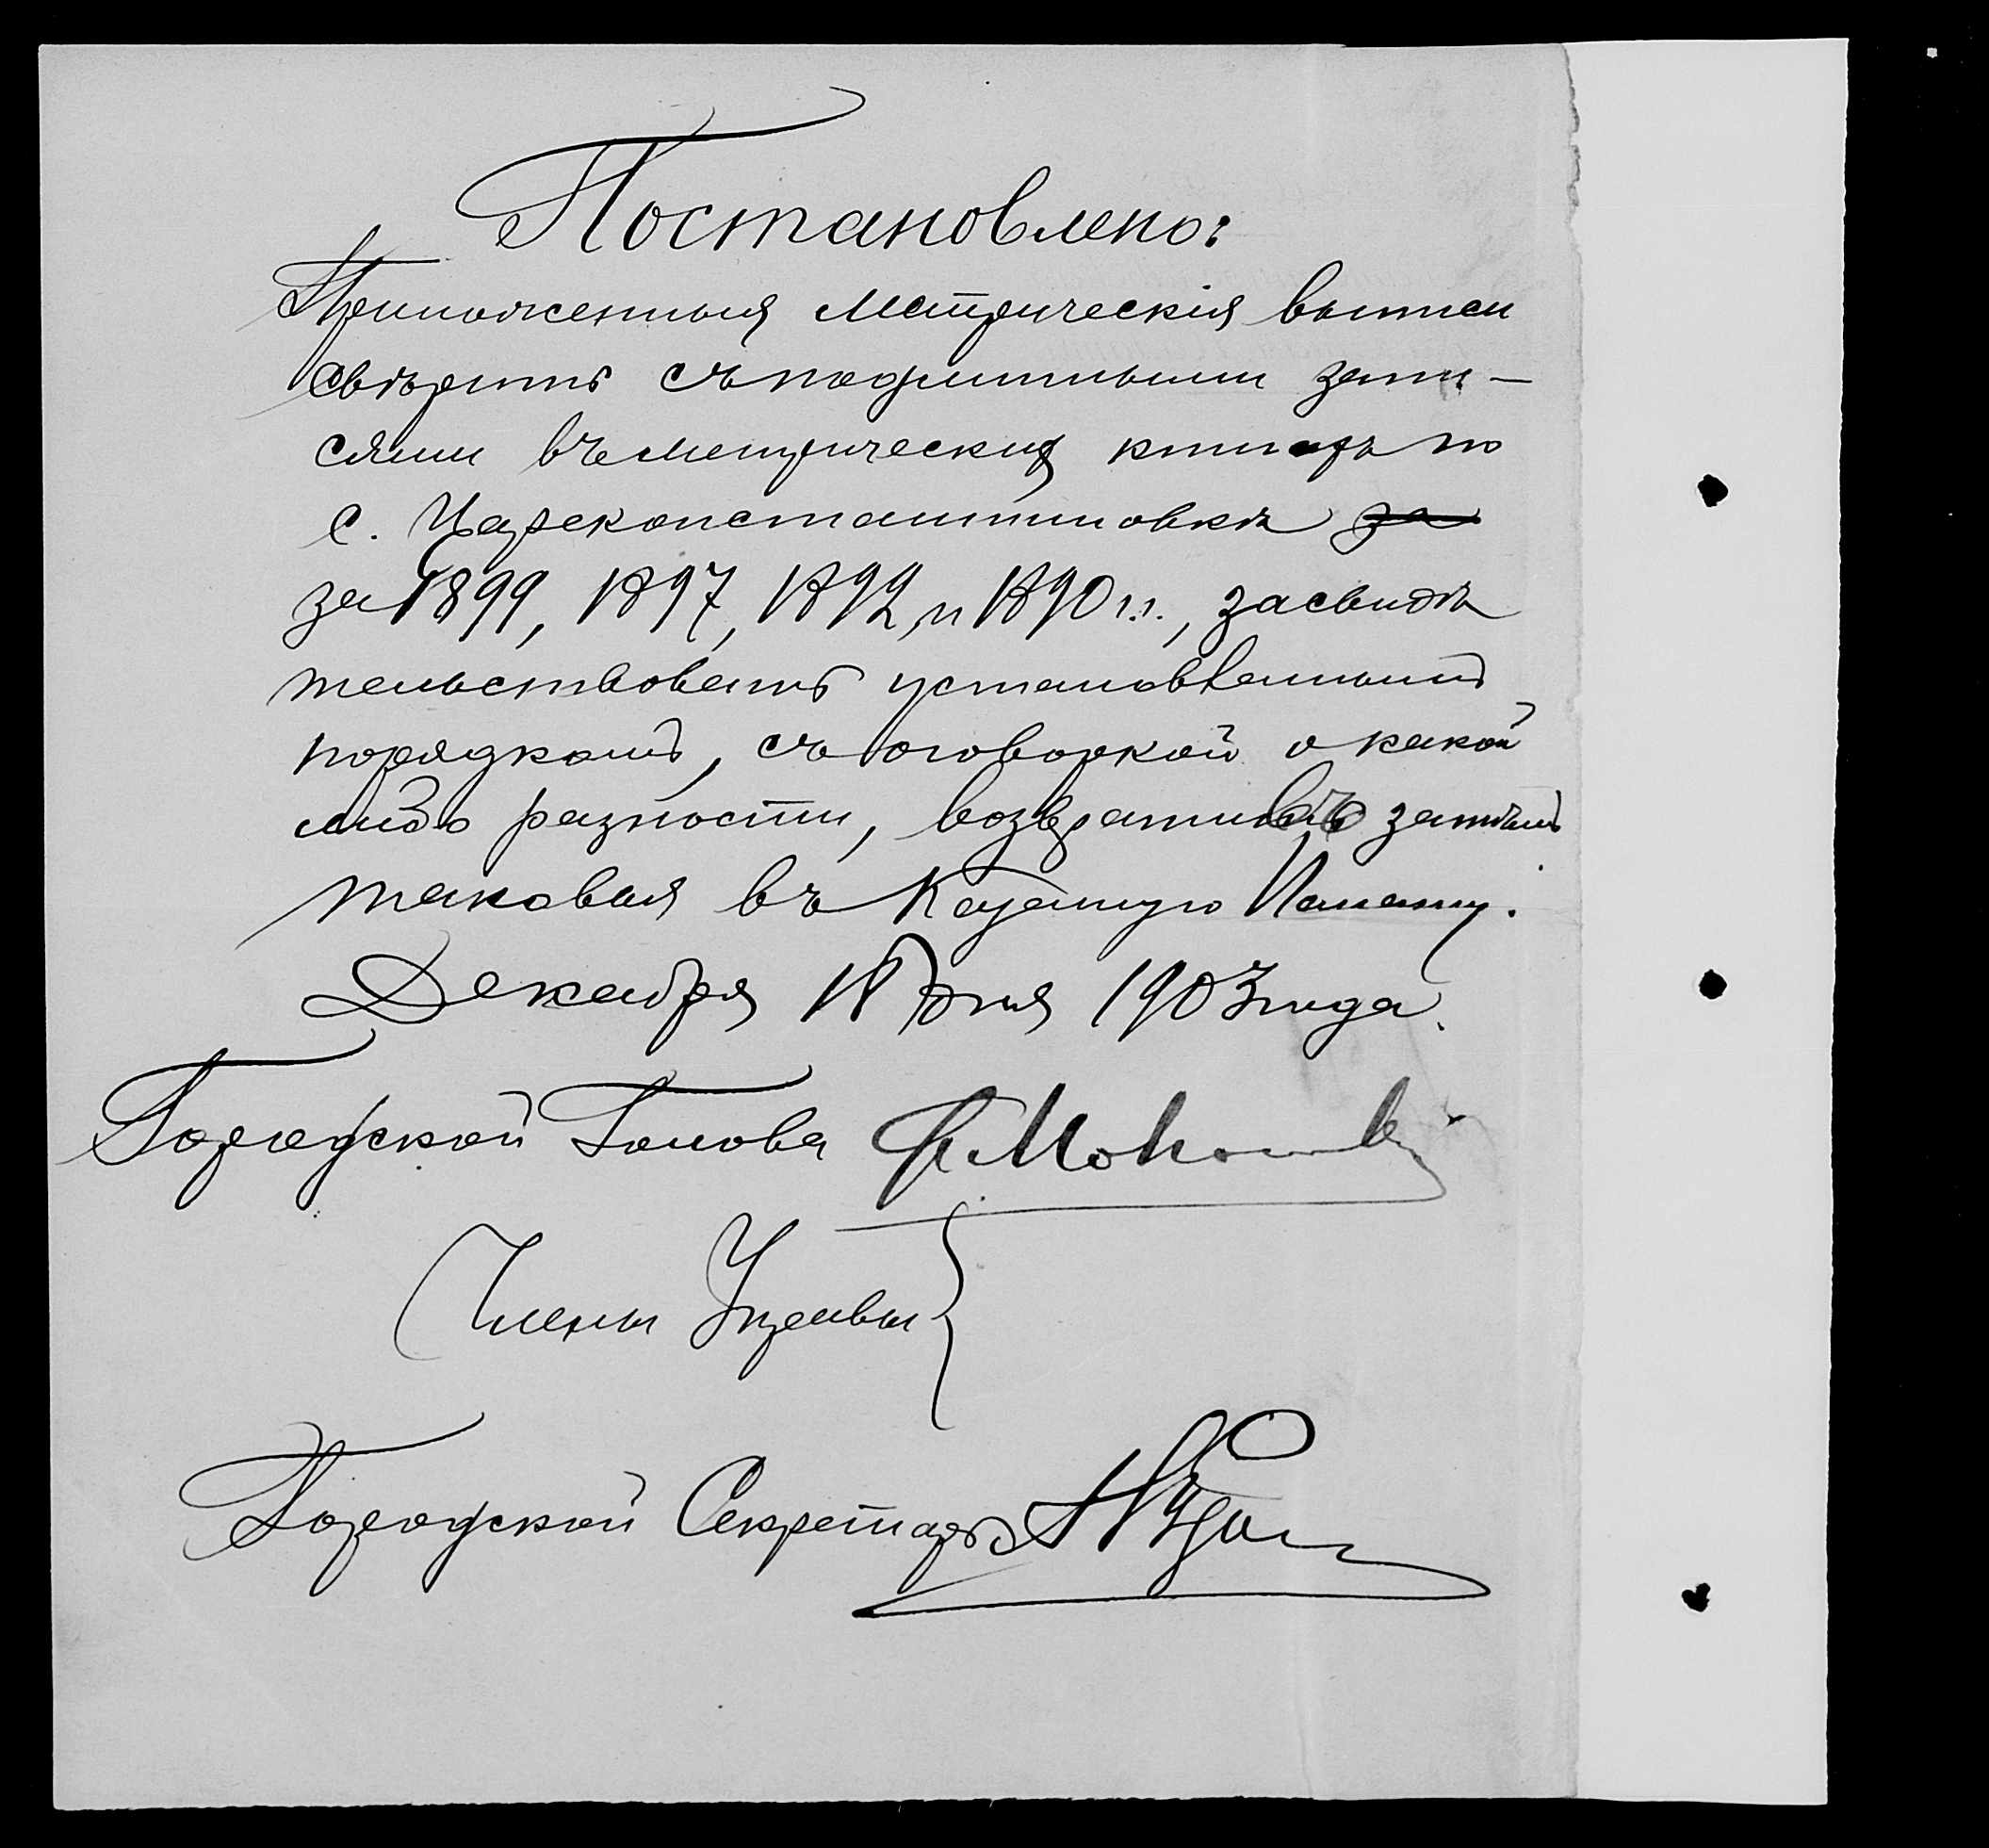 Постановлено:
Приложенныя метрическія выписи
свѣрить съ подлинными запи-
сями въ метрическихъ книгахъ по
с. Цареконстантиновкѣ за
за 1899, 1897, 1892, и 1890 г.г., засвидѣ
тельствовать установленнымъ
порядкомъ, съ оговоркой о какой
либо разности, возвративъ затѣмъ
таковыя въ Казенную Палату.
Декабря 18 дня 1903 года.
Городской Голова
Члены Управы
Городской Секретарь